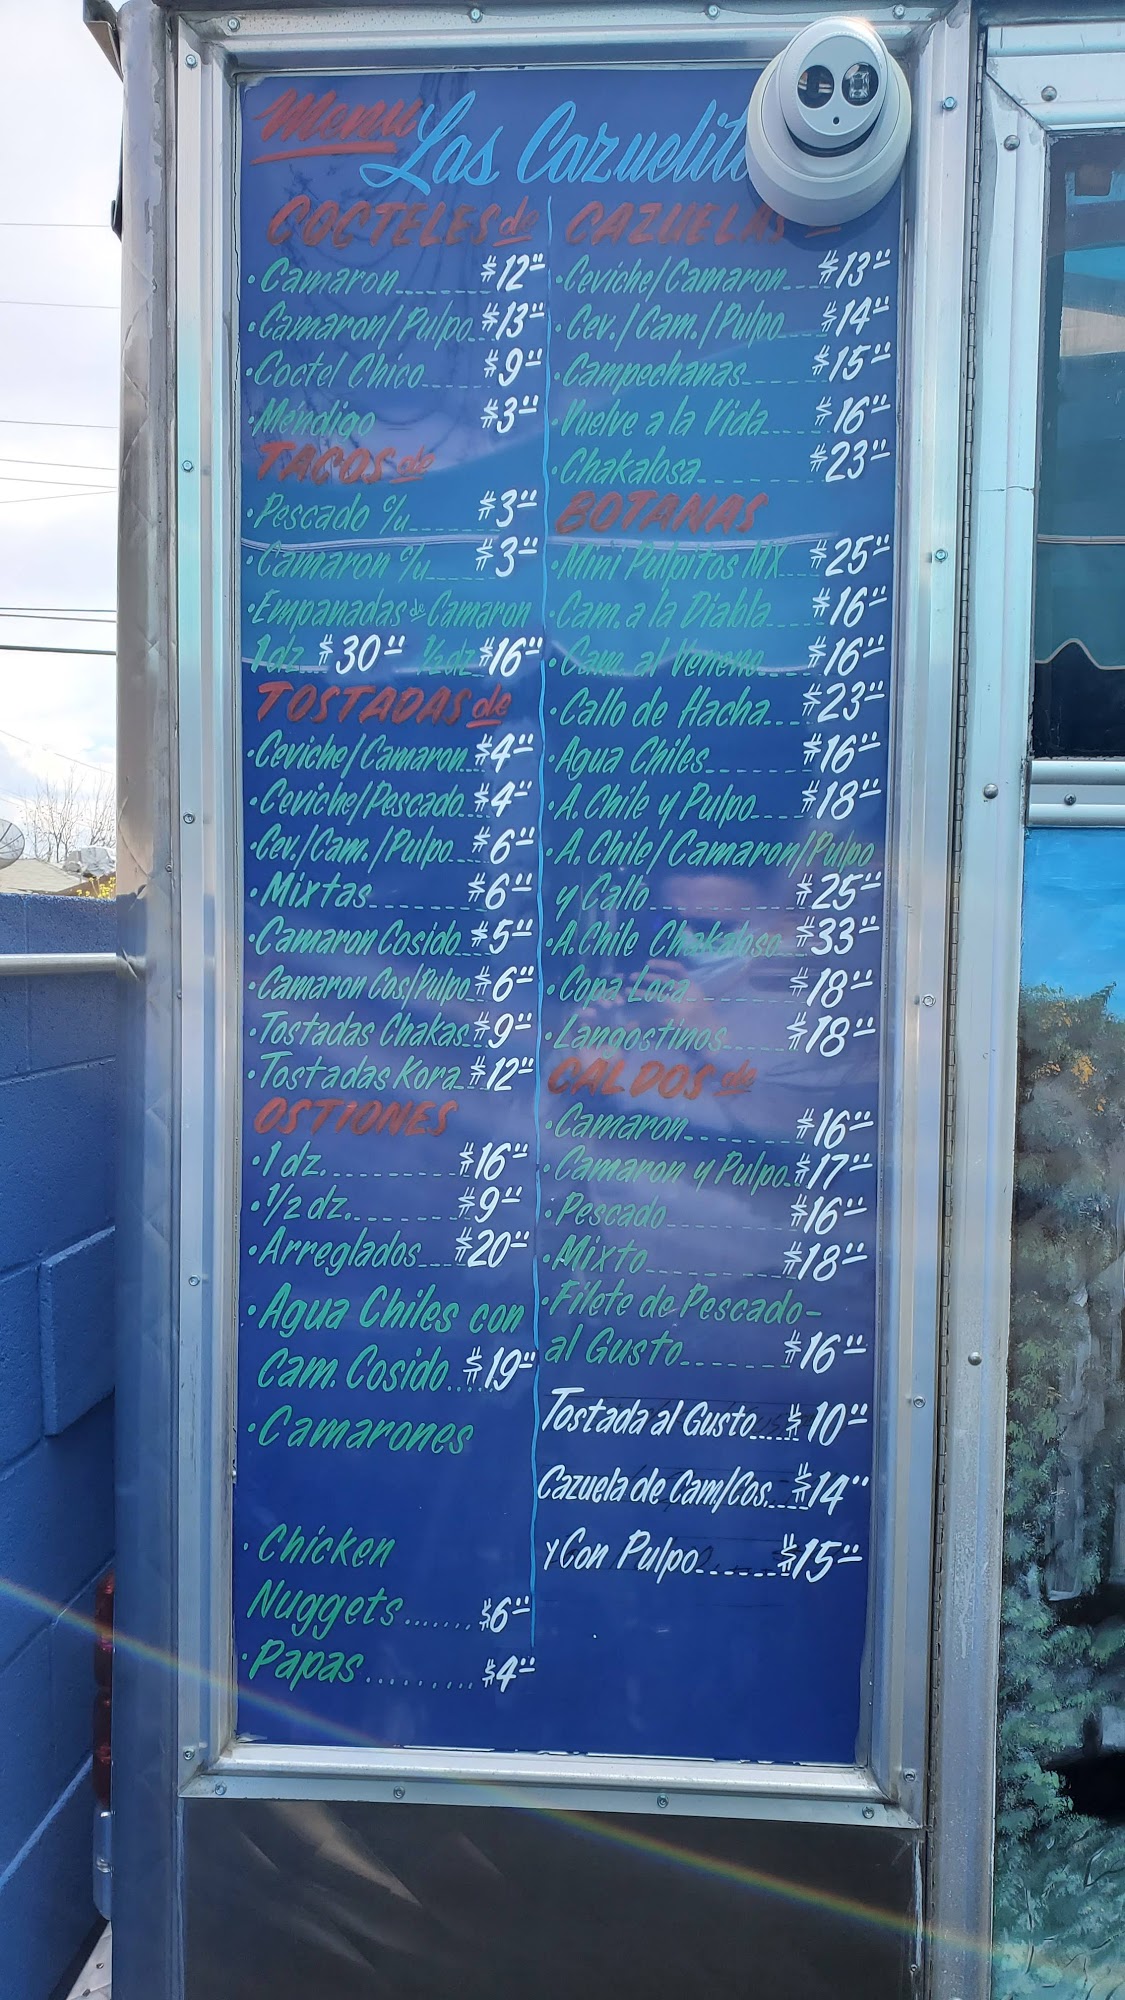 Menu Las
COCTELES de
• Camaron $12"
• Camaron/Pulpo $13"
• Coctel Chico $9"
• Mendigo $3"
TACOS de
• Pescado c/u $3"
• Camaron c/u $3"
• Empanadas de Camaron
1 dz. $30" ½ dz $16"
TOSTADAS de
• Ceviche/Camaron $4"
• Ceviche/Pescado $4"
• Cev./Cam./Pulpo $6"
• Mixtas $6"
• Camaron Cosido $5"
• Camaron Cos/Pulpo $6"
• Tostadas Chakas $9"
• Tostadas Kora $12"
OSTIONES
• 1 dz. $16"
• 1/2 dz. $9"
• Arreglados $20"
• Agua Chiles con
Cam. Cosido $19"
• Camarones
• Chicken
Nuggets $6"
• Papas $4"
CAZUELAS
• Ceviche/Camaron $13"
• Cev./Cam./Pulpo $14"
• Campechanas $15"
• Vuelve a la Vida $16"
• Chakalosa $23"
BOTANAS
• Mini Pulpitos MX $25"
• Cam. a la Diabla $16"
• Cam. al Veneno $16"
• Callo de Hacha $23"
• Agua Chiles $16"
• A. Chile y Pulpo $18"
• A. Chile/Camaron/Pulpo
y Callo $25"
• A. Chile Chakaloso $33"
• Copa Loca $18"
• Langostinos $18"
CALDOS de
• Camaron $16"
• Camaron y Pulpo $17"
• Pescado $16"
• Mixto $18"
• Filete de Pescado-
al Gusto $16"
Tostada al Gusto $10"
Cazuela de Cam/Cos. $14"
y Con Pulpo $15"